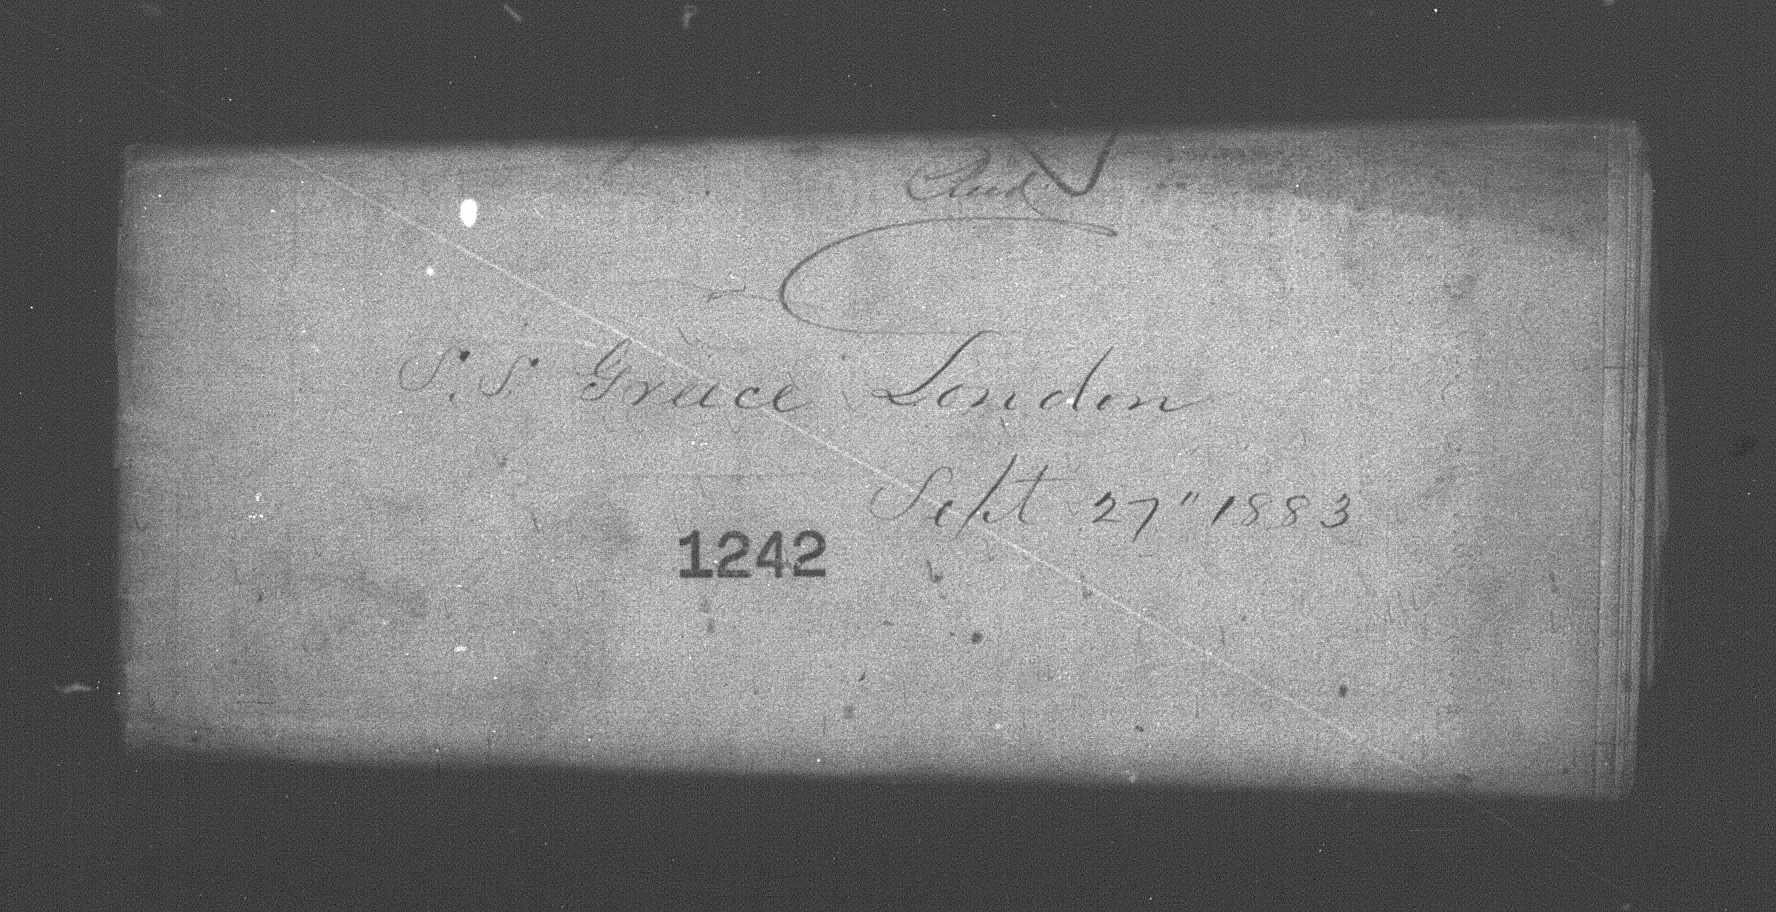 S. S. Grece London
Sept 27" 1883
1242